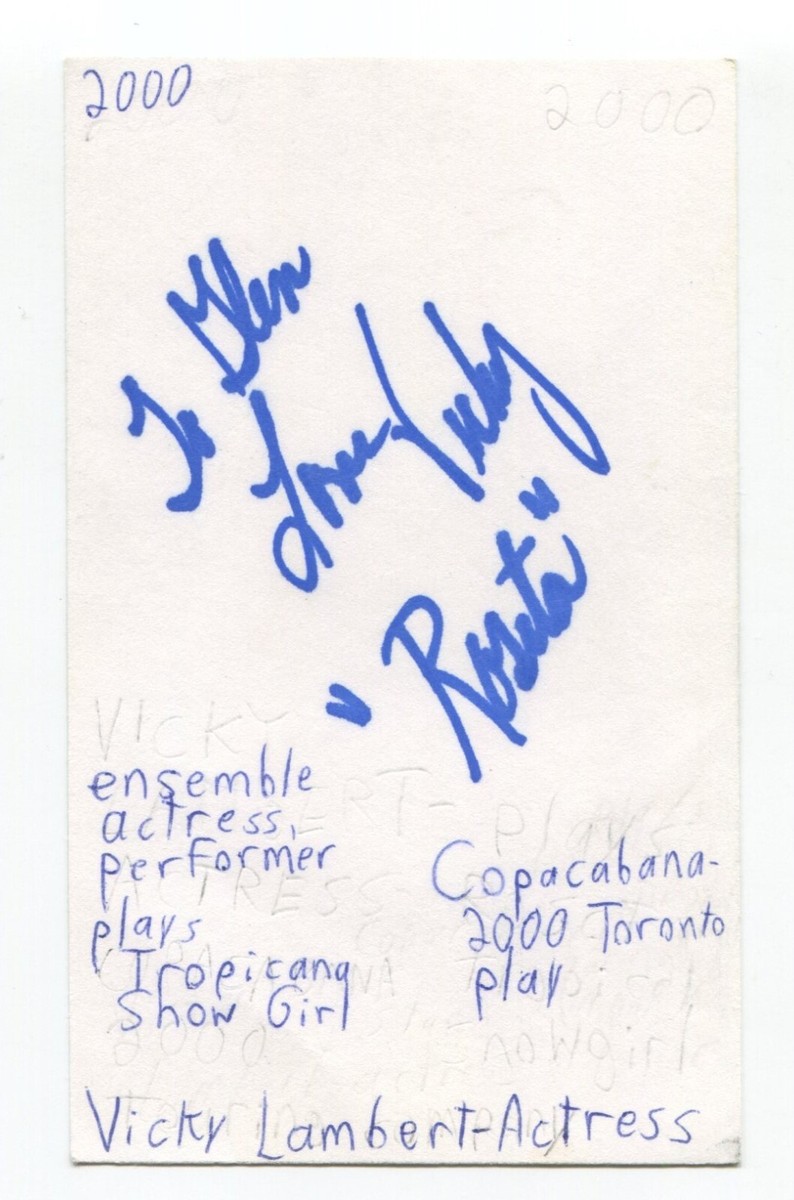 2000
2000
To Glen
Love Vicky
"Rosita"
VICKY
ensemble
actress,
performer
plays
Tropicana
Show Girl
Copacabana-
2000 Toronto
play
Vicky Lambert-Actress